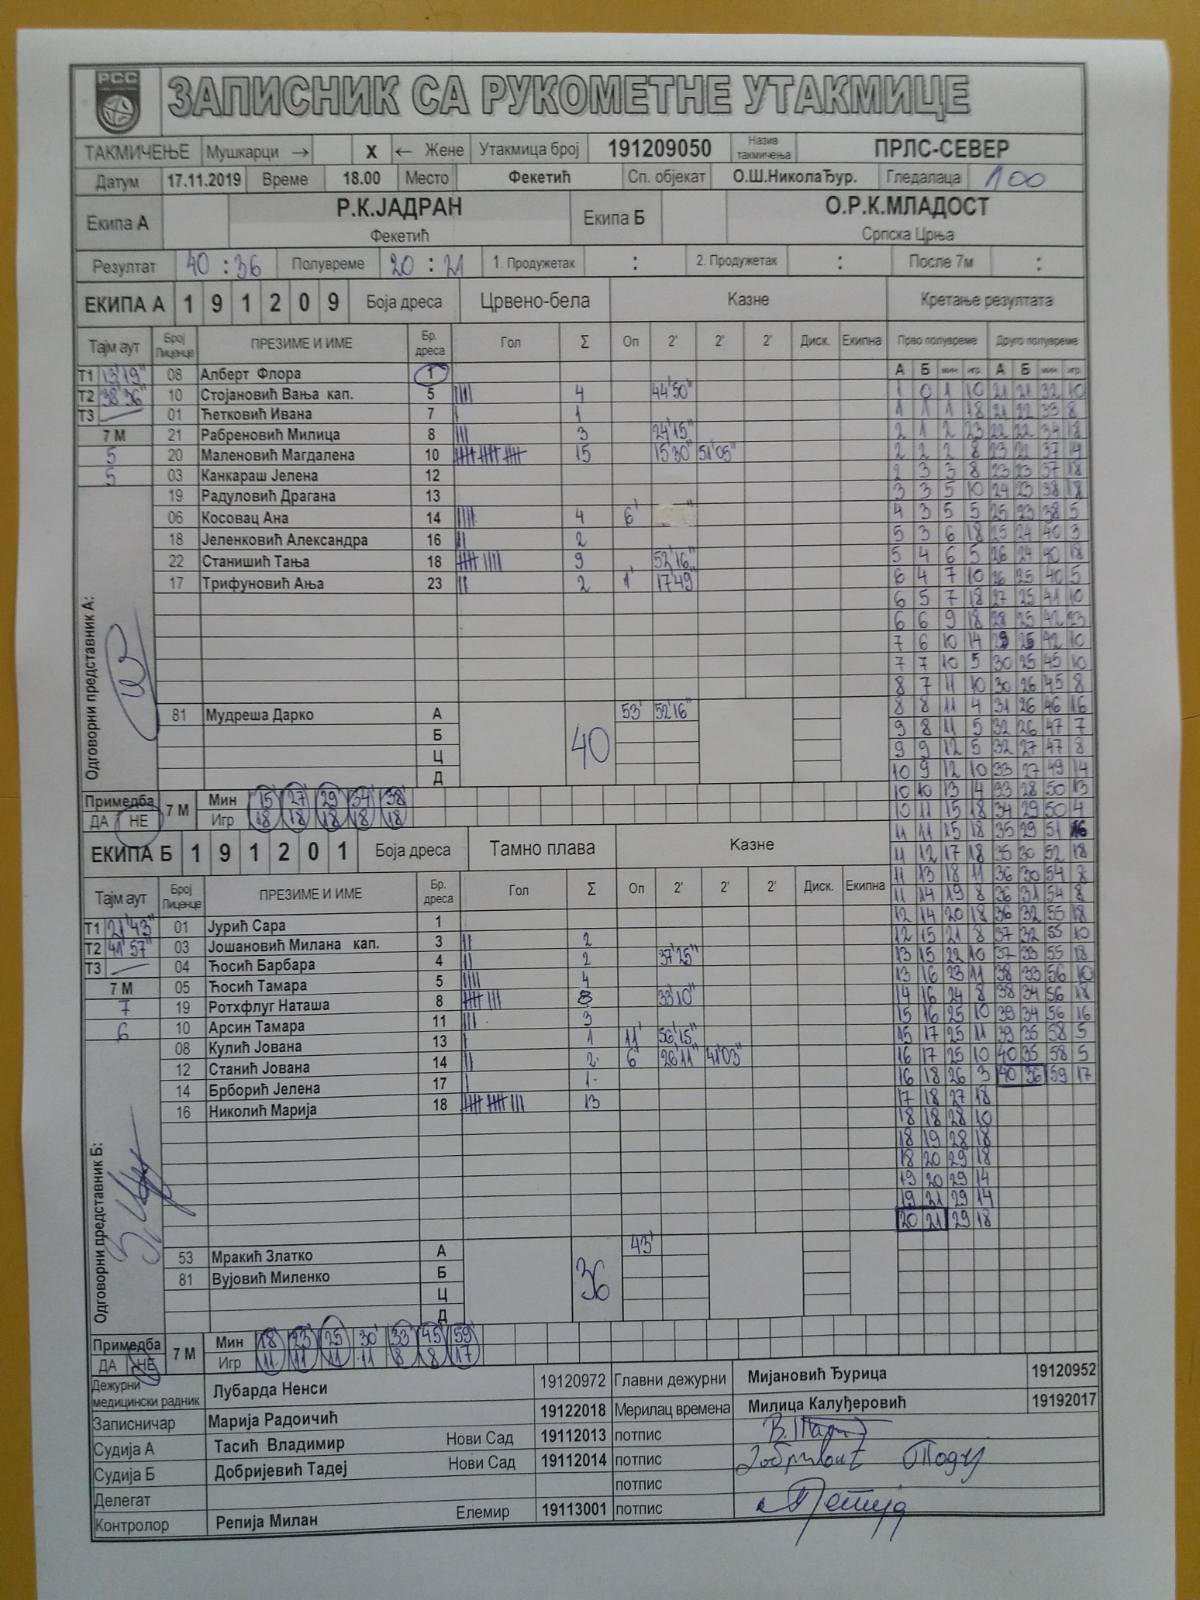 РСС
ЗАПИСНИК СА РУКОМЕТНЕ УТАКМИЦЕ
ТАКМИЧЕЊЕ Мушкарци → X ← Жене Утакмица број 191209050 Назив такмичења ПРЛС-СЕВЕР
Датум 17.11.2019 Време 18.00 Место Фекетић Сп. објекат О.Ш.НиколаЂур. Гледалаца 100
Екипа А Р.К.ЈАДРАН Фекетић Екипа Б О.Р.К.МЛАДОСТ Српска Црња
Резултат 40 : 36 Полувреме 20 : 21 1. Продужетак : 2. Продужетак : После 7м :
ЕКИПА А 1 9 1 2 0 9 Боја дреса Црвено-бела Казне Кретање резултата
Тајм аут Број Лиценце ПРЕЗИМЕ И ИМЕ Бр. дреса Гол Σ Оп 2' 2' 2' Диск. Екипна Прво полувреме Друго полувреме
А Б мин игр А Б мин игр
Т1 13'19" 08 Алберт Флора 1
Т2 38'36" 10 Стојановић Вања кап. 5 4 44'50"
Т3 01 Ћетковић Ивана 7 1
7 М 21 Рабреновић Милица 8 3 24'15"
5 20 Маленовић Магдалена 10 15 15'30" 51'05"
5 03 Канкараш Јелена 12
19 Радуловић Драгана 13
06 Косовац Ана 14 4 6'
18 Јеленковић Александра 16 2
22 Станишић Тања 18 9 52'16"
17 Трифуновић Ања 23 2 1' 17'49"
Одговорни представник А:
81 Мудреша Дарко А 40 53' 52'16"
Б
Ц
Д
Примедба 7 М Мин 15' 27' 29' 34' 38'
ДА НЕ Игр 18 18 18 18 18
ЕКИПА Б 1 9 1 2 0 1 Боја дреса Тамно плава Казне
Тајм аут Број Лиценце ПРЕЗИМЕ И ИМЕ Бр. дреса Гол Σ Оп 2' 2' 2' Диск. Екипна
Т1 21'43" 01 Јурић Сара 1
Т2 41'57" 03 Јошановић Милана кап. 3 2
Т3 04 Ћосић Барбара 4 2 37'25"
7 М 05 Ћосић Тамара 5 4
7 19 Ротхфлуг Наташа 8 8 33'10"
6 10 Арсин Тамара 11 3
08 Кулић Јована 13 1 11' 56'15"
12 Станић Јована 14 2 6' 26'11" 41'03"
14 Брборић Јелена 17 1
16 Николић Марија 18 13
Одговорни представник Б:
53 Мракић Златко А 36 43'
81 Вујовић Миленко Б
Ц
Д
Примедба 7 М Мин 18' 23' 25' 30' 33' 45' 59'
ДА НЕ Игр 11 11 11 11 8 8 17
1 0 1 10 21 21 32 10
1 1 1 18 21 22 33 8
2 1 2 23 22 22 34 18
2 2 2 8 23 22 37 14
2 3 3 8 23 23 37 18
3 3 5 10 24 23 38 18
4 3 5 5 25 23 38 5
5 3 6 18 25 24 40 3
5 4 6 5 26 24 40 18
6 4 7 10 26 25 40 5
6 5 7 18 27 25 41 10
6 6 9 18 28 25 42 23
7 6 10 14 29 25 42 10
7 7 10 5 30 25 45 10
8 7 11 10 30 26 45 8
8 8 11 4 31 26 46 16
9 8 11 5 32 26 47 7
9 9 12 5 32 27 47 8
10 9 12 10 33 27 49 14
10 10 13 4 33 28 50 13
10 11 15 18 34 29 50 4
11 11 15 18 35 29 51 16
11 12 17 18 35 30 52 18
11 13 18 11 36 30 54 8
11 14 19 8 36 31 54 8
12 14 20 18 36 32 55 18
12 15 21 8 37 32 55 10
13 15 22 10 37 33 55 18
13 16 23 11 38 33 56 10
14 16 24 8 38 34 56 18
15 16 25 10 39 34 56 16
15 17 25 11 39 35 58 5
16 17 25 10 40 35 58 5
16 18 26 3 40 36 59 17
17 18 27 18
18 18 28 10
18 19 28 18
18 20 29 18
19 20 29 14
19 21 29 14
20 21 29 18
Дежурни медицински радник Лубарда Ненси 19120972 Главни дежурни Мијановић Ђурица 19120952
Записничар Марија Радоичић 19122018 Мерилац времена Милица Калуђеровић 19192017
Судија А Тасић Владимир Нови Сад 19112013 потпис
Судија Б Добријевић Тадеј Нови Сад 19112014 потпис
Делегат потпис
Контролор Репија Милан Елемир 19113001 потпис